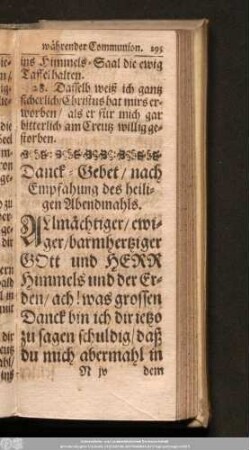 währender Communion. 295
ins Himmels-Saal die ewig
Taffel halten.
28. Dasselb weiß ich gantz
sicherlich/Christus hat mirs er-
worben/ als er für mich gar
bitterlich am Creutz willig ge-
storben.
Danck-Gebet/ nach
Empfahung des heili-
gen Abendmahls.
ALlmächtiger/ ewi-
ger/barmhertziger
GOtt und HERR
Himmels und der Er-
den/ ach! was grossen
Danck bin ich dir ietzo
zu sagen schuldig/ daß
du mich abermahl in
N jv dem